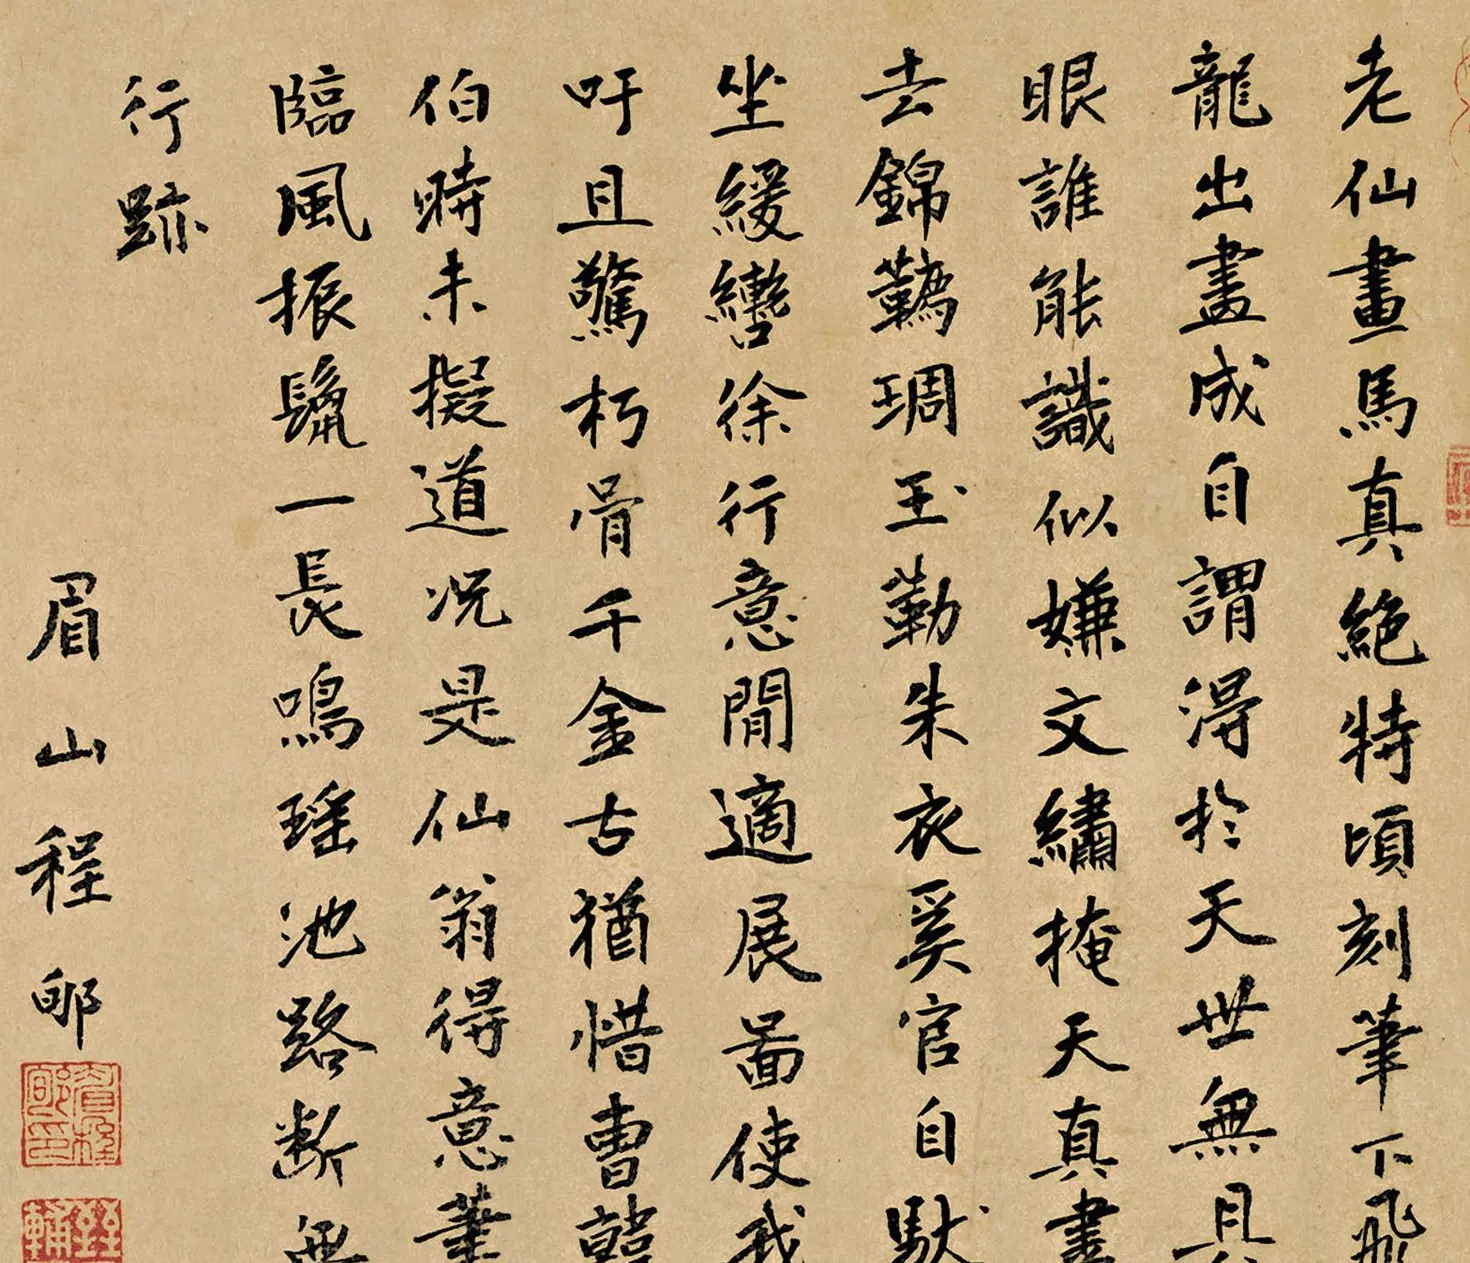 老仙畫馬真絕特頃刻筆下飛
龍出畫成自謂淂於天世無具
眼誰能識似嫌文繡掩天真畫
去錦韉琱玉勒朱衣奚官自馱
坐緩轡徐行意閒適展啚使我
吁且驚朽骨千金古猶惜曹韓
伯時未擬道况是仙翁得意筆
臨風振鬛一長鳴瑤池路斷無
行跡
眉山程郇